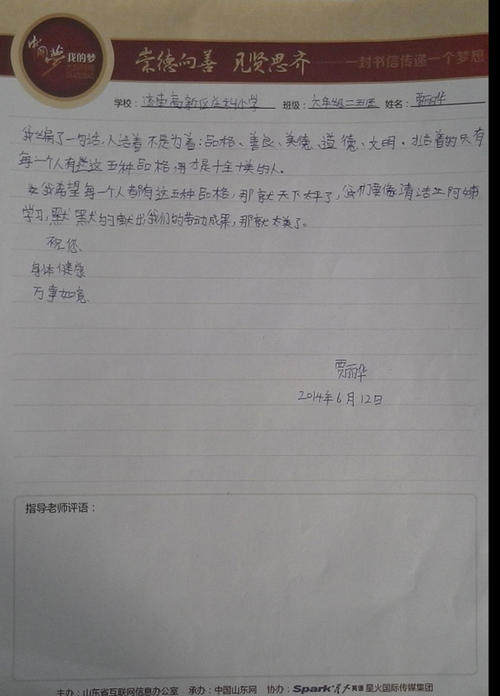 中国梦 我的梦
崇德向善 见贤思齐 一封书信传递一个梦想
学校：济南高新区庄科小学 班级：六年级二班 姓名：贾丽华
我编了一句话，人活着不是为着：品格、善良、美德、道德、文明。活着的只有
每一个人有这五种品格，才是十全十美的人。
我希望每一个人都有这五种品格，那就天下太平了，我们要像清洁工阿姨
学习，默默的献出我们的劳动成果，那就太美了。
祝您
身体健康
万事如意
贾丽华
2014年6月12日
指导老师评语：
主办：山东省互联网信息办公室 承办：中国山东网 协办：Spark星火英语 星火国际传媒集团